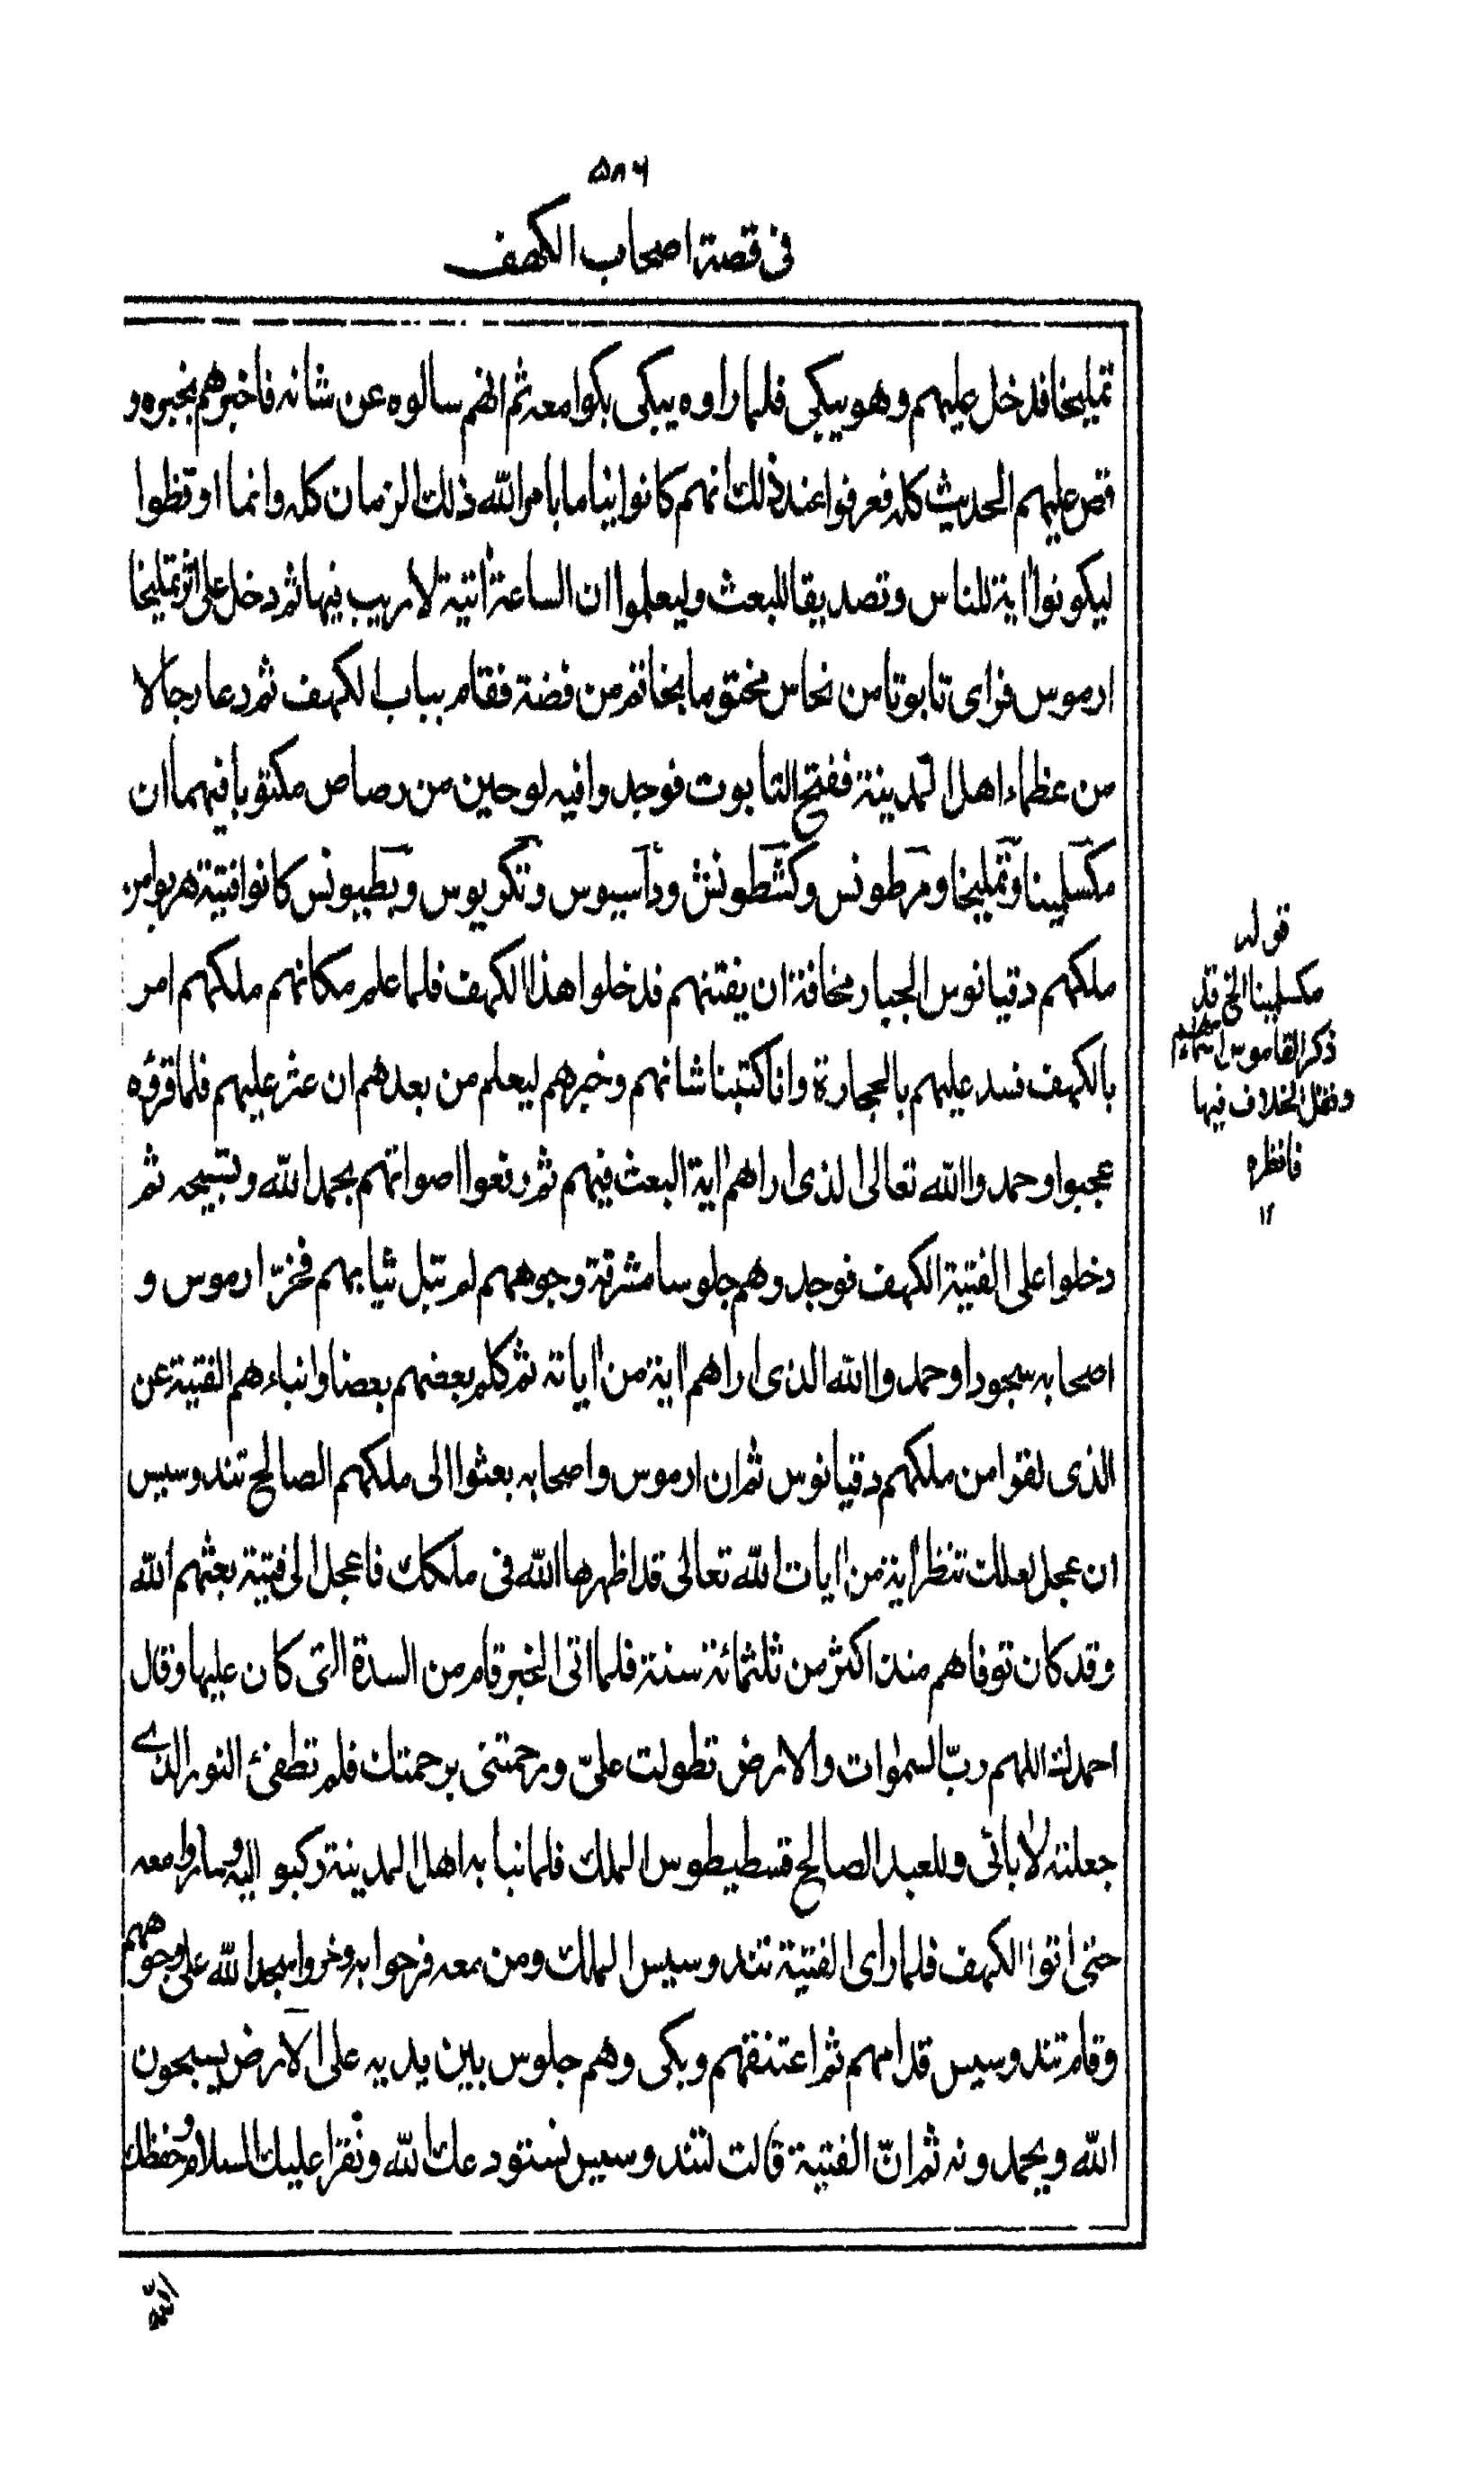 ۵۸۶
فی قصة اصحاب الکهف
تملیخا فدخل علیهم وهو یبکی فلما راوه یبکی بکوا معه ثم انهم سالوه عن شانه فاخبرهم بخبره و
قص علیهم الحدیث کله فعرفوا عند ذلك انهم کانوا نیاما بامر الله ذلك الزمان کله وانما اوقظوا
لیکونوا اٰیة للناس وتصدیقا للبعث ولیعلموا ان الساعة اٰتیة لاریب فیها ثم دخل علی اثر تملیخا
ارموس فرای تابوتا من نحاس مختوما بخاتم من فضة فقام بباب الکهف ثم دعا رجالا
من عظماء اهل المدینة ففتح التابوت فوجدوا فیه لوحین من رصاص مکتوبا فیهما ان
مکسلمینا وتملیخا ومرطونس وکشطونش ودآسیوس وتکریوس وبطیونس کانوا فتیة هربوا من
ملکهم دقیانوس الجبار مخافة ان یفتنهم فدخلوا هذا الکهف فلما علم مکانهم ملکهم امر
بالکهف فسد علیهم بالحجارة وانا کتبنا شانهم وخبرهم لیعلم من بعدهم ان عثر علیهم فلما قرؤه
عجبوا وحمدوا الله تعالی الذی اراهم اٰیة البعث فیهم ثم رفعوا اصواتهم بحمد الله وتسبیحه ثم
دخلوا علی الفتیة الکهف فوجدوهم جلوسا مشرقة وجوههم لم تبل ثیابهم فخرّ ارموس و
اصحابه سجودا وحمدوا الله الذی اراهم اٰیة من اٰیاته ثم کلم بعضهم بعضا وانباءهم الفتیة عن
الذی لقوا من ملکهم دقیانوس ثم ان ارموس واصحابه بعثوا الی ملکهم الصالح تندوسیس
ان عجل لعلك تنظر اٰیة من اٰیات الله تعالی قد اظهرها الله فی ملکك فاعجل الی فتیة بعثهم الله
وقد کان توفاهم منذ اکثر من ثلثمائة سنة فلما اتی الخبر قام من السدة التی کان علیها وقال
احمدك اللهم ربّ السمٰوات والارض تطولت علیّ ورحمتنی برحمتك فلم تطفئ النور الذی
جعلته لاٰبائی وللعبد الصالح قسطیطوس الملك فلما نبأ به اهل المدینة رکبوا الیه وساروا معه
حتی اتوا الکهف فلما رای الفتیة تندوسیس الملك ومن معه فرحوا به وخروا سجدا لله علی وجوههم
وقام تندوسیس قدامهم ثم اعتنقهم وبکی وهم جلوس بین یدیه علی الارض یسبحون
الله ویحمدونه ثم انّ الفتیة قالت لتندوسیس نستودعك الله ونقرا علیك السلام وحفظك
قوله
مکسلمینا الخ قد
ذکر القاموس اسماءهم
ونقل الخلاف فیها
فانظره
۱۲
الله